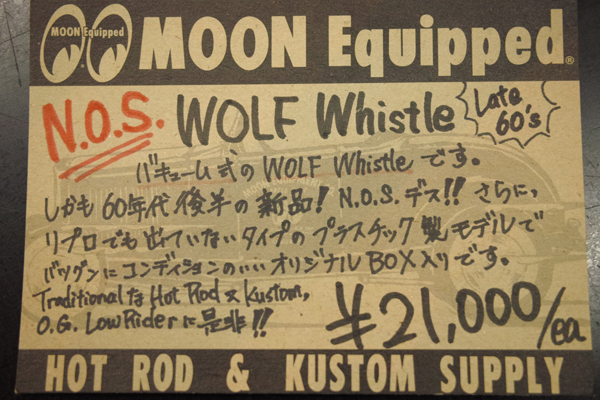 MOON Equipped MOON Equipped®
N.O.S. WOLF Whistle Late 60's
バキューム式のWOLF Whistleです。
しかも60年代後半の新品! N.O.S.デス!! さらに、
リプロでも出ていないタイプのプラスチック製モデルで
バツグンにコンディションのいいオリジナルBOX入りです。
TraditionalなHot Rod & Kustom,
O.G. LowRiderに是非!!
¥21,000/ea
HOT ROD & KUSTOM SUPPLY